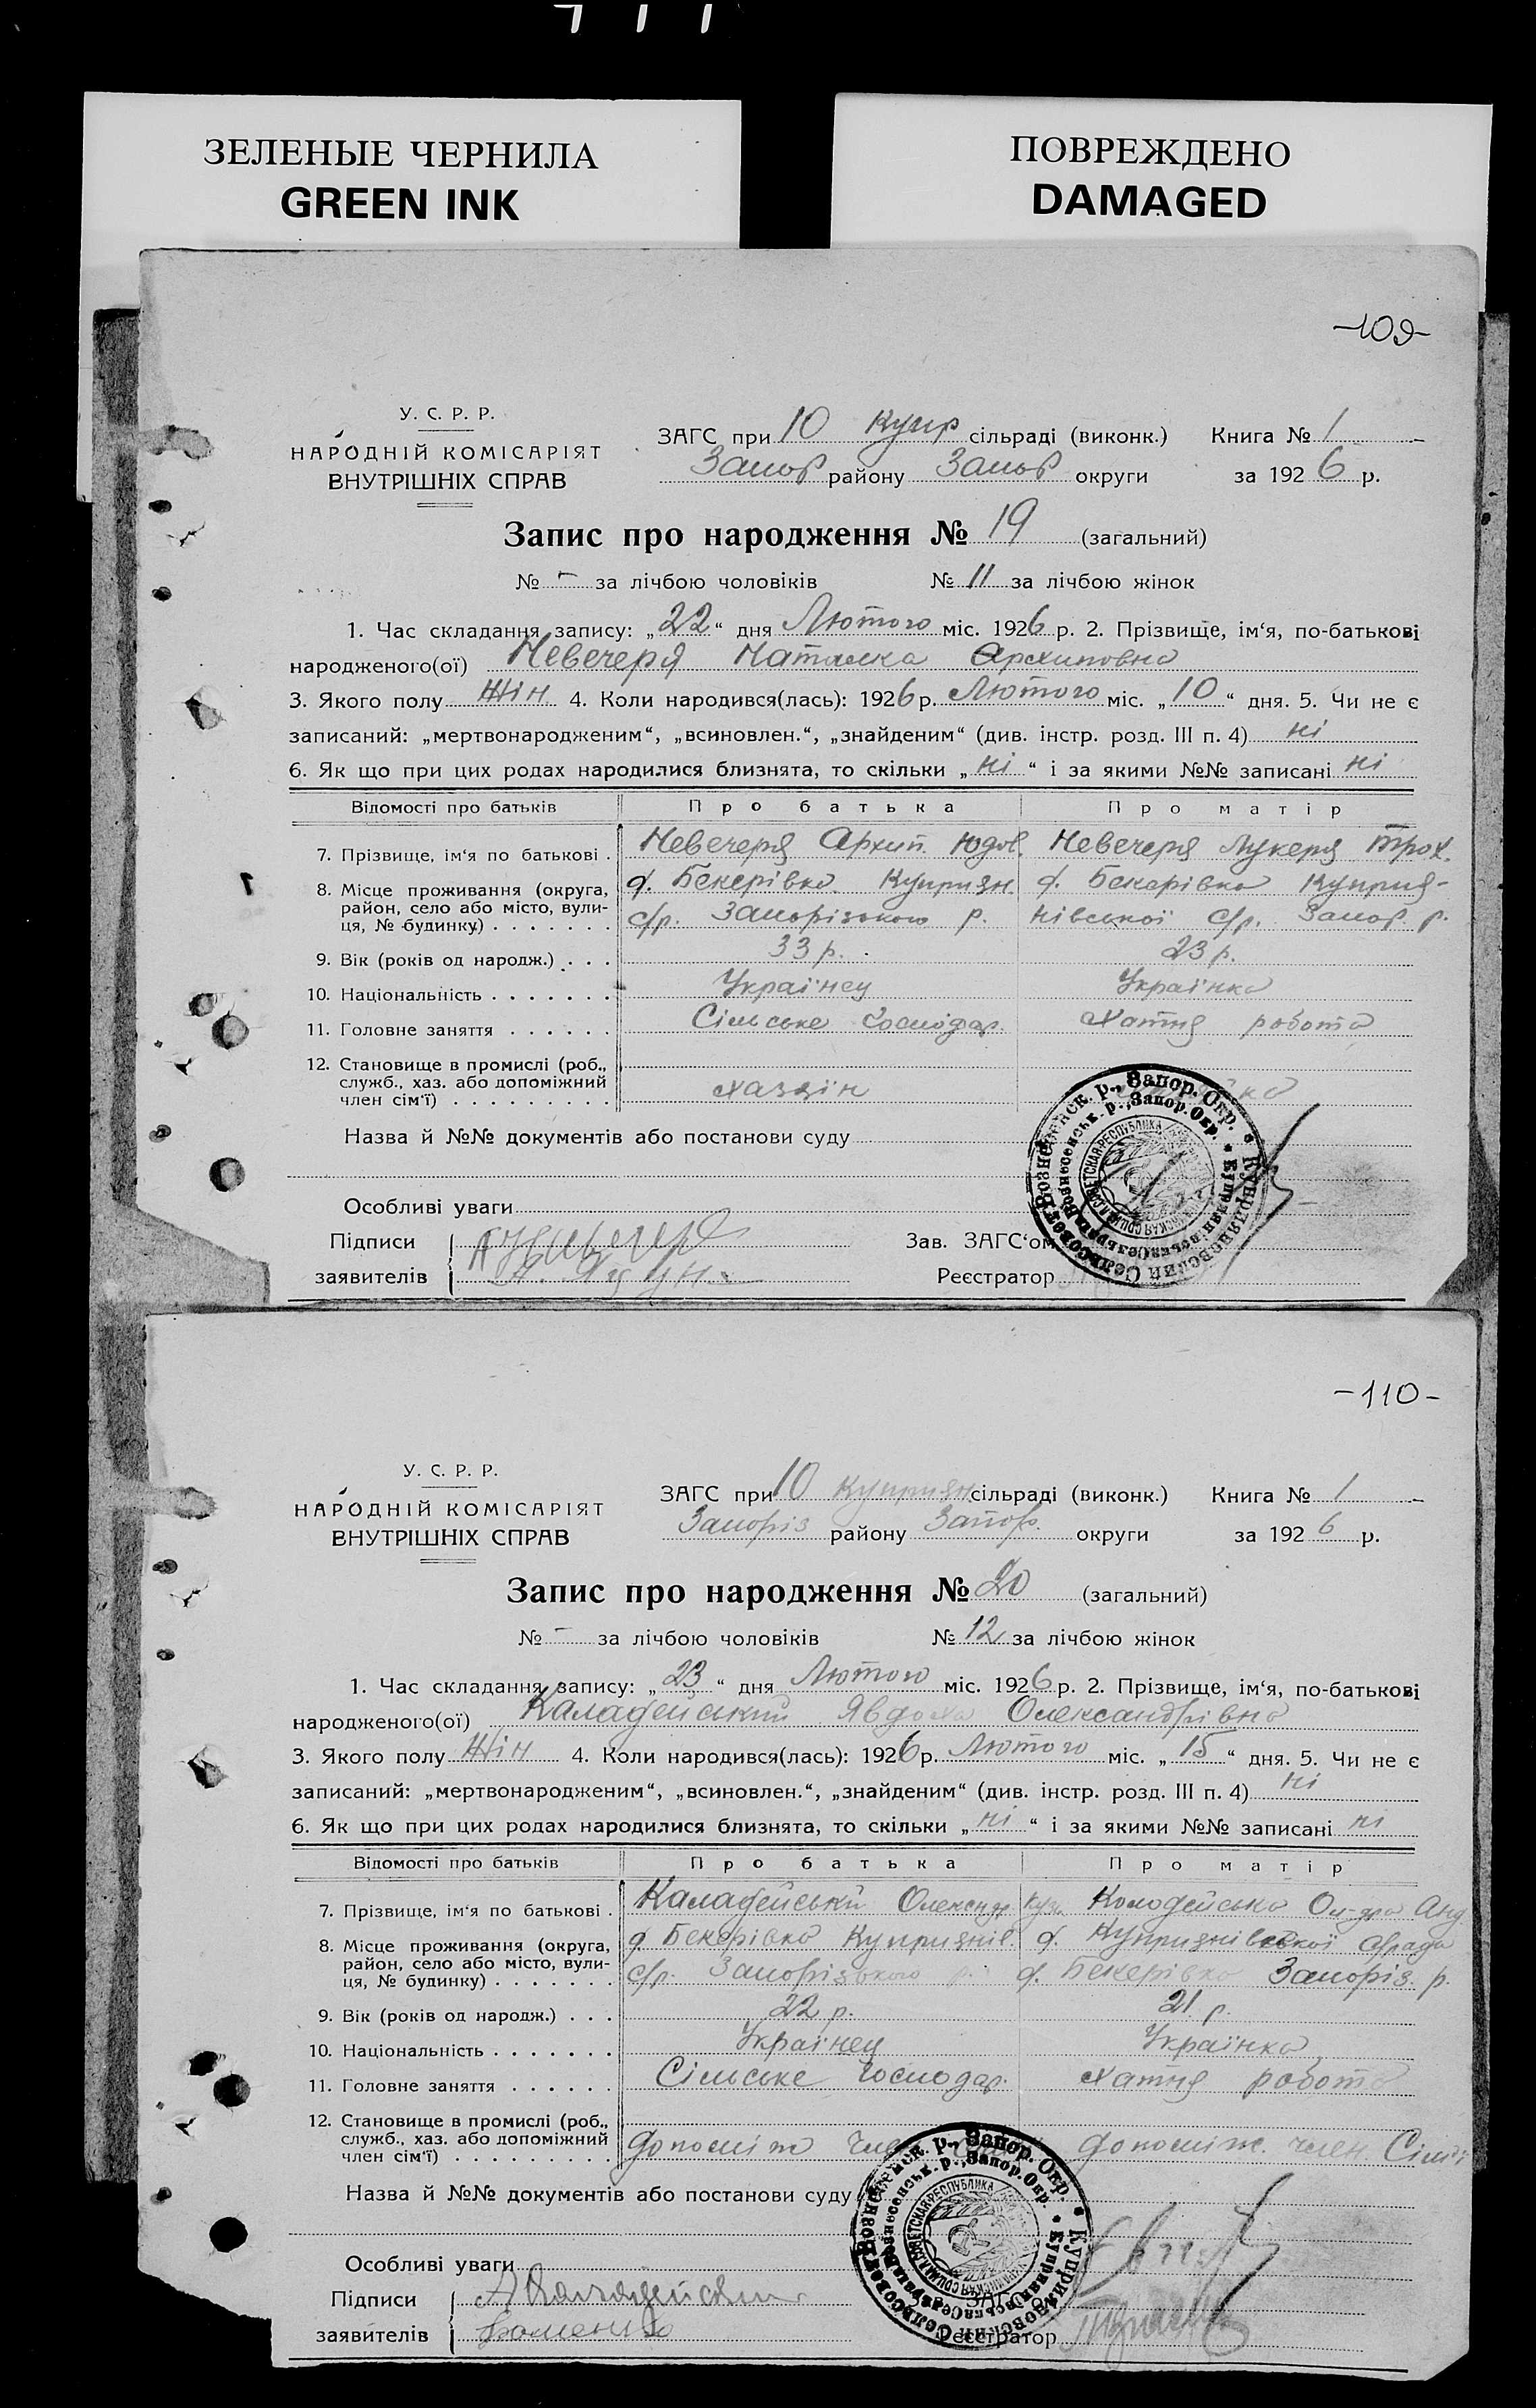 ЗЕЛЕНЫЕ ЧЕРНИЛА
GREEN INK
ПОВРЕЖДЕНО
DAMAGED
-109-
У. С. Р. Р.
НАРОДНІЙ КОМІСАРІЯТ
ВНУТРІШНІХ СПРАВ
ЗАГС при 10 Купр сільраді (виконк.) Книга № 1
Запор району Запор округи за 1926 р.
Запис про народження № 19 (загальний)
№ - за лічбою чоловіків № 11 за лічбою жінок
1. Час складання запису: „22“ дня Лютого міс. 1926 р. 2. Прізвище, ім‘я, по-батькові
народженого(ої) Невечеря Наталка Архиповна
3. Якого полу Жін 4. Коли народився(лась): 1926 р. Лютого міс. „10“ дня. 5. Чи не є
записаний: „мертвонародженим“, „всиновлен.“, „знайденим“ (див. інстр. розд. III п. 4) ні
6. Як що при цих родах народилися близнята, то скільки „ні“ і за якими №№ записані ні
Відомості про батьків Про батька Про матір
7. Прізвище, ім‘я по батькові . Невечеря Архип. Юдов. Невечеря Лукеря Трох.
8. Місце проживання (округа, д. Бекерівка Куприян. д. Бекерівка Куприя-
район, село або місто, вули- с/р. Запорізького р. нівської с/р. Запор. р.
ця, № будинку) . . . . . . .
9. Вік (років од народж.) . . . 33 р. 23 р.
10. Національність . . . . . . . Українец Українка
11. Головне заняття . . . . . . Сільське Господар. Хатня робота
12. Становище в промислі (роб.,
служб., хаз. або допоміжний
член сім‘ї) . . . . . . . . . Хазяін
Назва й №№ документів або постанови суду
Особливі уваги
Підписи
заявителів
Зав. ЗАГС‘ом
Реєстратор
-110-
У. С. Р. Р.
НАРОДНІЙ КОМІСАРІЯТ
ВНУТРІШНІХ СПРАВ
ЗАГС при 10 Куприян сільраді (виконк.) Книга № 1
Запоріз району Запор. округи за 1926 р.
Запис про народження № 20 (загальний)
№ - за лічбою чоловіків № 12 за лічбою жінок
1. Час складання запису: „23“ дня Лютого міс. 1926 р. 2. Прізвище, ім‘я, по-батькові
народженого(ої) Каладейський Явдоха Олександрівна
3. Якого полу Жін 4. Коли народився(лась): 1926 р. Лютого міс. „15“ дня. 5. Чи не є
записаний: „мертвонародженим“, „всиновлен.“, „знайденим“ (див. інстр. розд. III п. 4) ні
6. Як що при цих родах народилися близнята, то скільки „ні“ і за якими №№ записані ні
Відомості про батьків Про батька Про матір
7. Прізвище, ім‘я по батькові . Каладейський Олександ. Кузм Колодейська Ол-дра Анд
8. Місце проживання (округа, д Бекерівка Куприянів. д. Купріянівської с/рада
район, село або місто, вули- с/р. Запорізького р. д. Бекерівка Запоріз. р.
ця, № будинку) . . . . . . .
9. Вік (років од народж.) . . . 22 р. 21 р.
10. Національність . . . . . . . Українец Українка
11. Головне заняття . . . . . . Сільське Господар. Хатня робота
12. Становище в промислі (роб.,
служб., хаз. або допоміжний
член сім‘ї) . . . . . . . . . допоміж допоміж. член. Сім'ї
Назва й №№ документів або постанови суду
Особливі уваги
Підписи
заявителів
Реєстратор